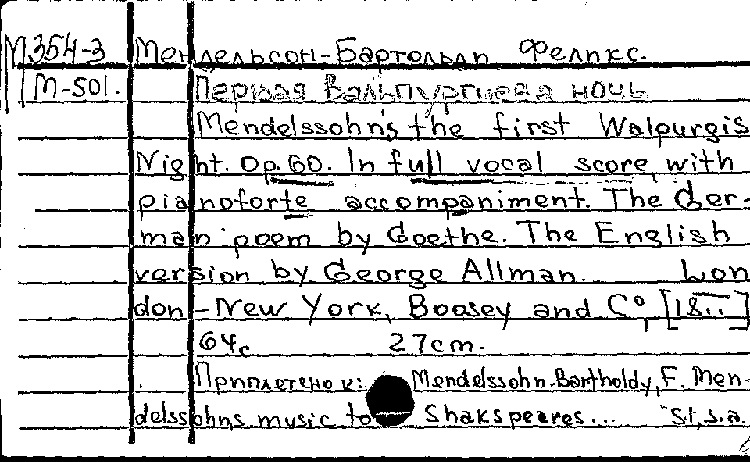 М354-3 Мендельсон-Бартольди Феликс.
М-501. Первая Вальпургиева ночь
Mendelssohn's the first Walpurgis
Night. Op.60. In full vocal score, with
pianoforte accompaniment. The Ger-
man poem by Goethe. The English
version by George Allman. Lon
don-New York, Boosey and C°, [18..]
64с 27cm.
Приплетено к: Mendelssohn-Bartholdy, F. Men-
delssohns music to Shakspeares... S.l, s.a.